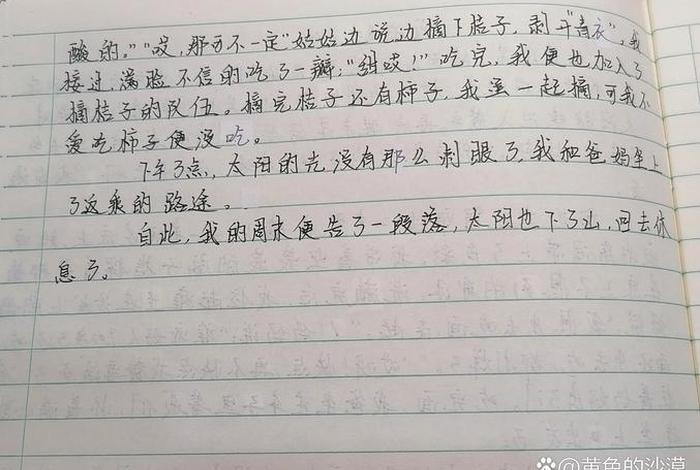 酸的。”“哎，那可不一定”姑姑边说边摘下桔子，剥开“青衣”，我
接过，满脸不信的吃了一瓣，“甜哎！”吃完，我便也加入了
摘桔子的队伍。摘完桔子还有柿子，我虽一起摘，可我不
爱吃柿子便没吃。
下午3点，太阳的光没有那么刺眼了，我和爸妈坐上
了返乘的路途。
自此，我的周末便告了一段落，太阳也下了山，回去休
息了。
Bai度@黄色的沙漠